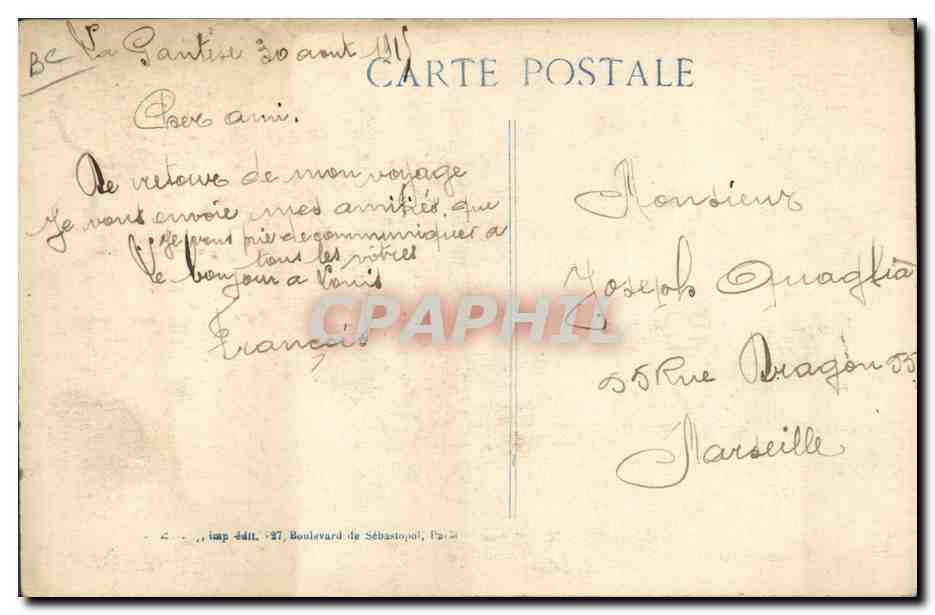 BC
La Gantèse 30 août 1915
CARTE POSTALE
Cher ami.
De retour de mon voyage
Je vous envoie mes amitiés, que
Je vous prie de communiquer a
tous les vôtres
Le bonjour a Louis
François
Monsieur
Joseph Quaglia
55 Rue Dragon 55
Marseille
CPAPHIL
imp édit. 27, Boulevard de Sébastopol, Paris